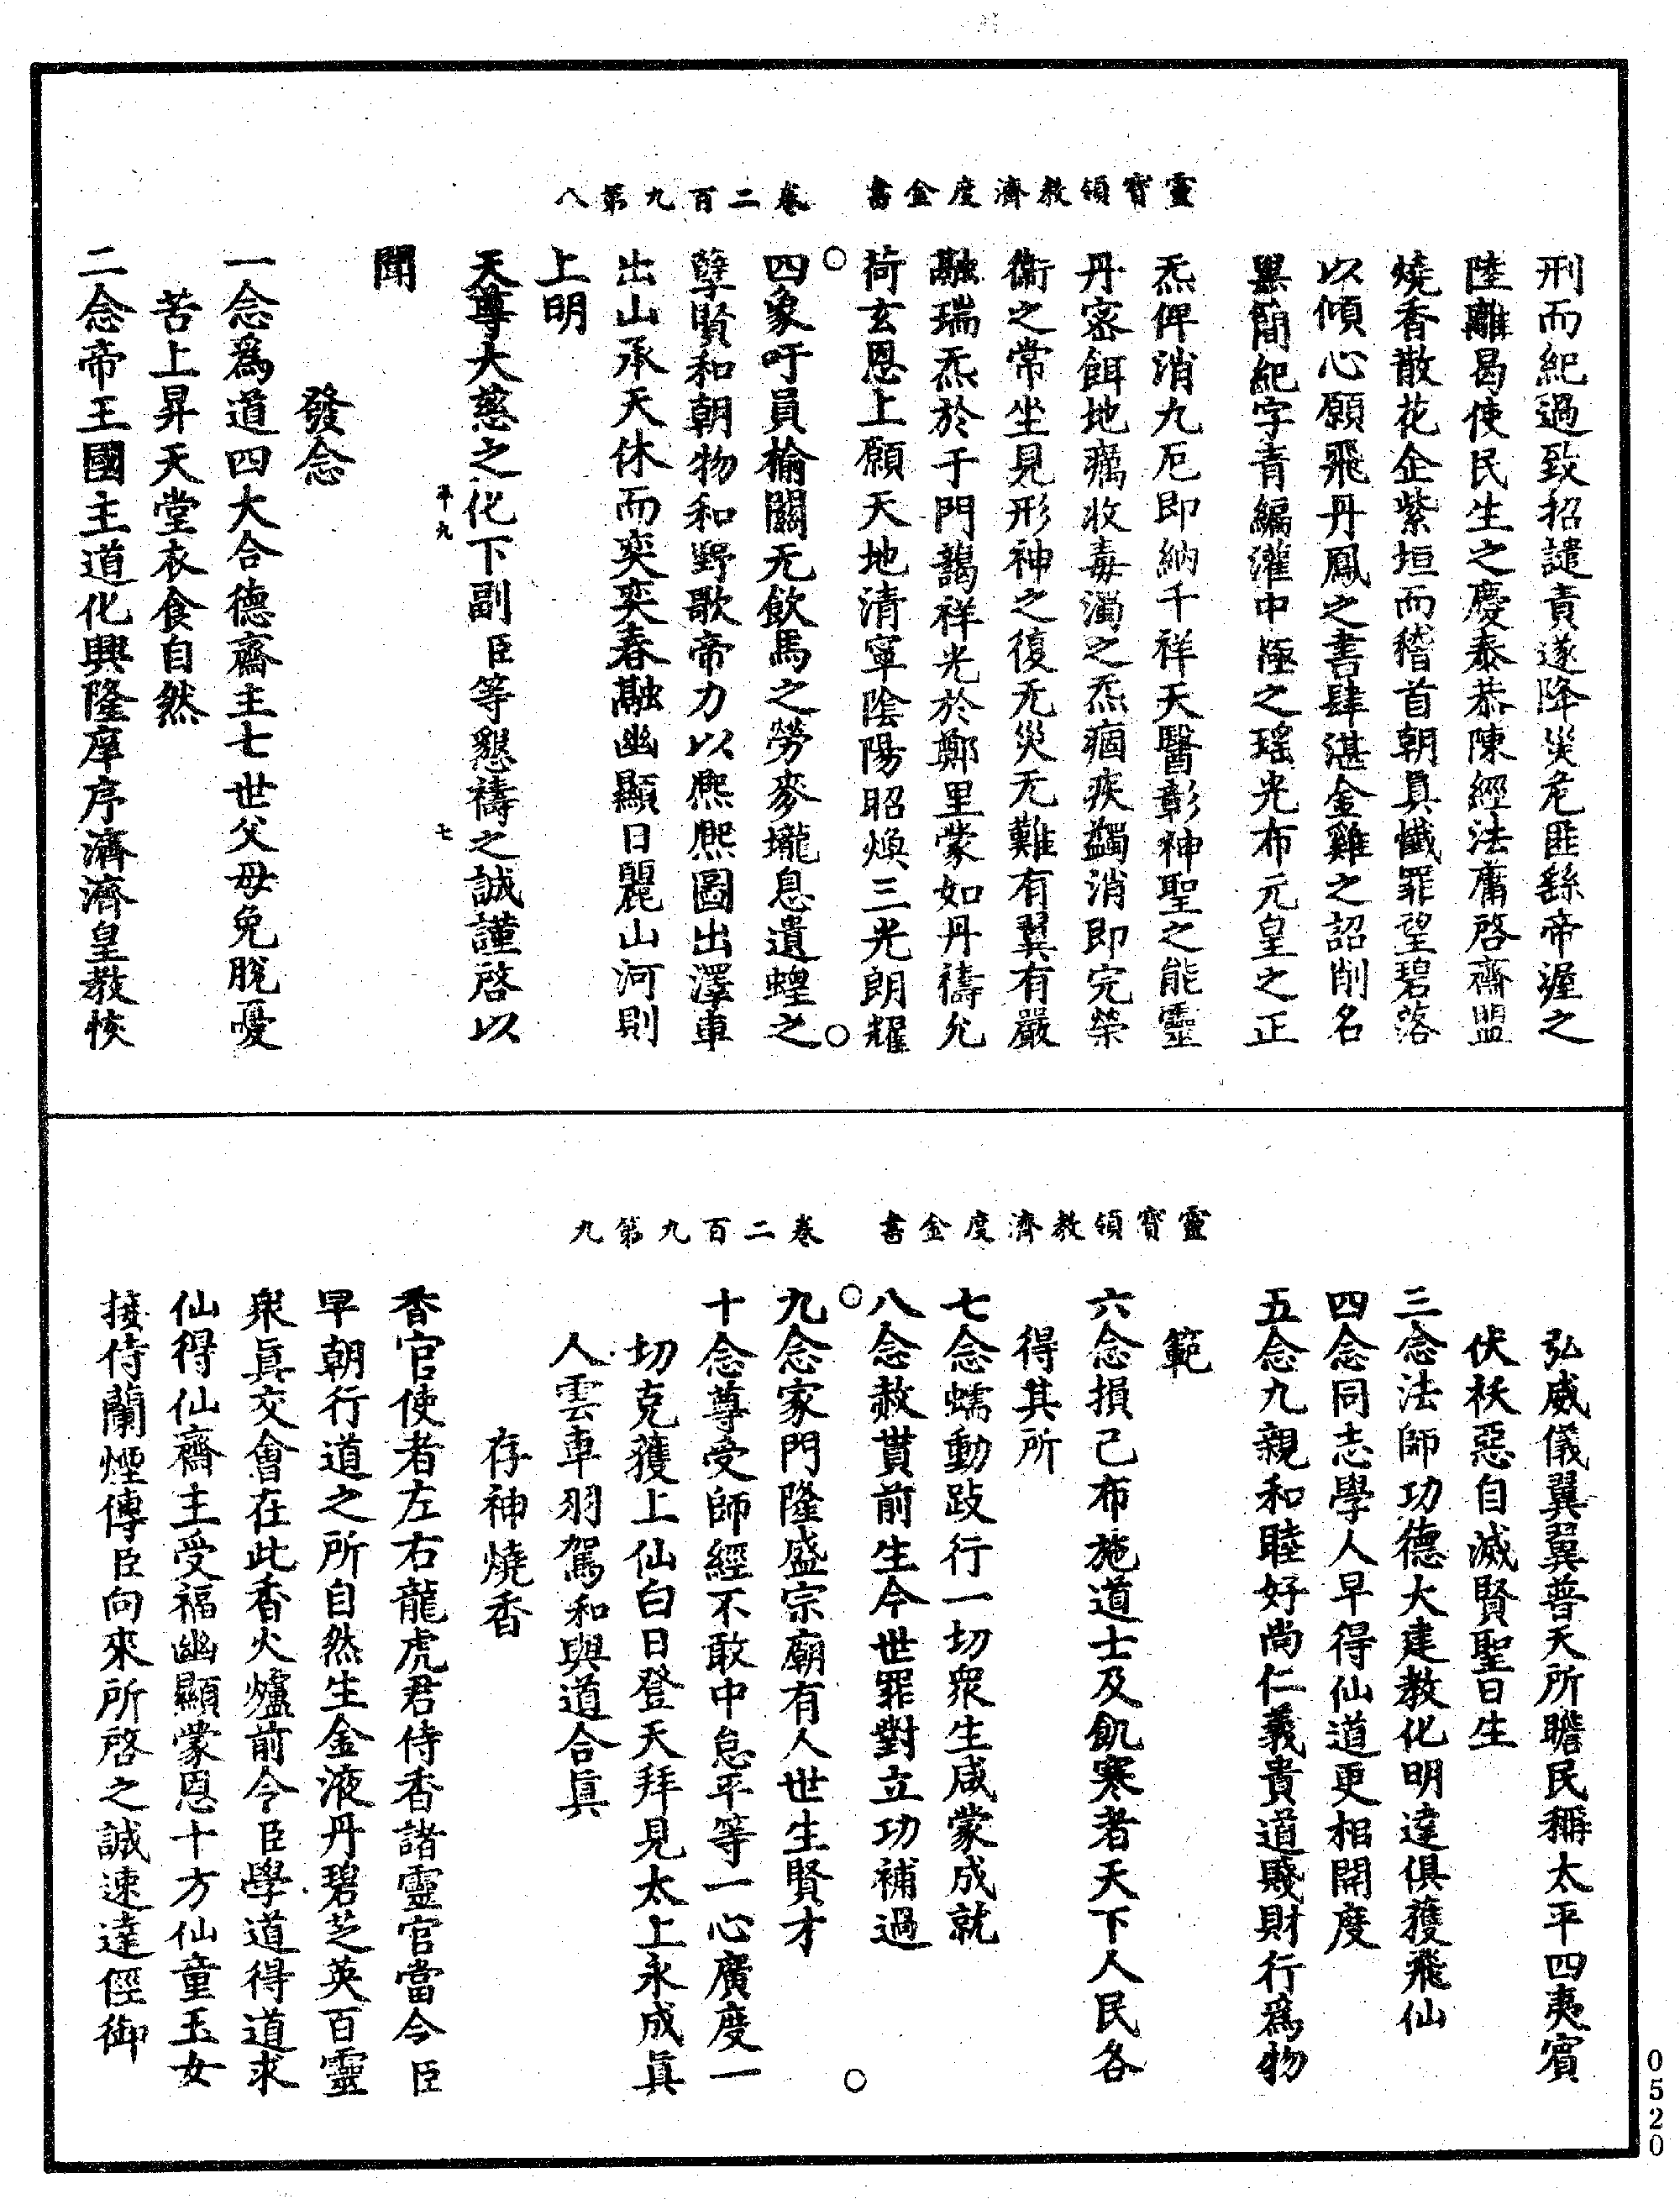 靈寶領教濟度金書　卷二百九第八
刑而紀過致招譴責遂降災危匪繇帝渥之
陸離曷使民生之慶泰恭陳經法庸啓齋盟
燒香散花企紫垣而稽首朝真懺罪望碧落
以傾心願飛丹鳳之書肆湛金雞之詔削名
黑簡紀字青編灌中極之瑤光布元皇之正
炁俾消九厄即納千祥天醫彰神聖之能靈
丹密餌地癘收毒濁之炁痼疾蠲消即完榮
衞之常坐見形神之復无災无難有翼有嚴
融瑞炁於于門藹祥光於鄭里蒙如丹禱允
荷玄恩上願天地清寧陰陽昭煥三光朗耀
四象吁員楡關无飲馬之勞麥壠息遺蝗之
孽賢和朝物和野歌帝力以熈熈圖出澤車
出山承天休而奕奕春融幽顯日麗山河則
上明
天尊大慈之化下副臣等懇禱之誠謹啓以
平九　七
聞
發念
一念爲道四大合德齋主七世父母免脫憂
苦上昇天堂衣食自然
二念帝王國主道化興隆庠序濟濟皇教恢
靈寶領教濟度金書　卷二百九第九
弘威儀翼翼普天所瞻民稱太平四夷賓
伏袄惡自滅賢聖日生
三念法師功德大建教化明達俱獲飛仙
四念同志學人早得仙道更相開度
五念九親和睦好尚仁義貴道賤財行爲物
範
六念損己布施道士及飢寒者天下人民各
得其所
七念蠕動跂行一切衆生咸蒙成就
八念赦貰前生今世罪對立功補過
九念家門隆盛宗廟有人世生賢才
十念尊受師經不敢中怠平等一心廣度一
切克獲上仙白日登天拜見太上永成真
人雲車羽駕和與道合真
存神燒香
香官使者左右龍虎君侍香諸靈官當令臣
早朝行道之所自然生金液丹碧芝英百靈
衆真交會在此香火爐前令臣學道得道求
仙得仙齋主受福幽顯蒙恩十方仙童玉女
接侍蘭煙傳臣向來所啓之誠速達徑御
0520